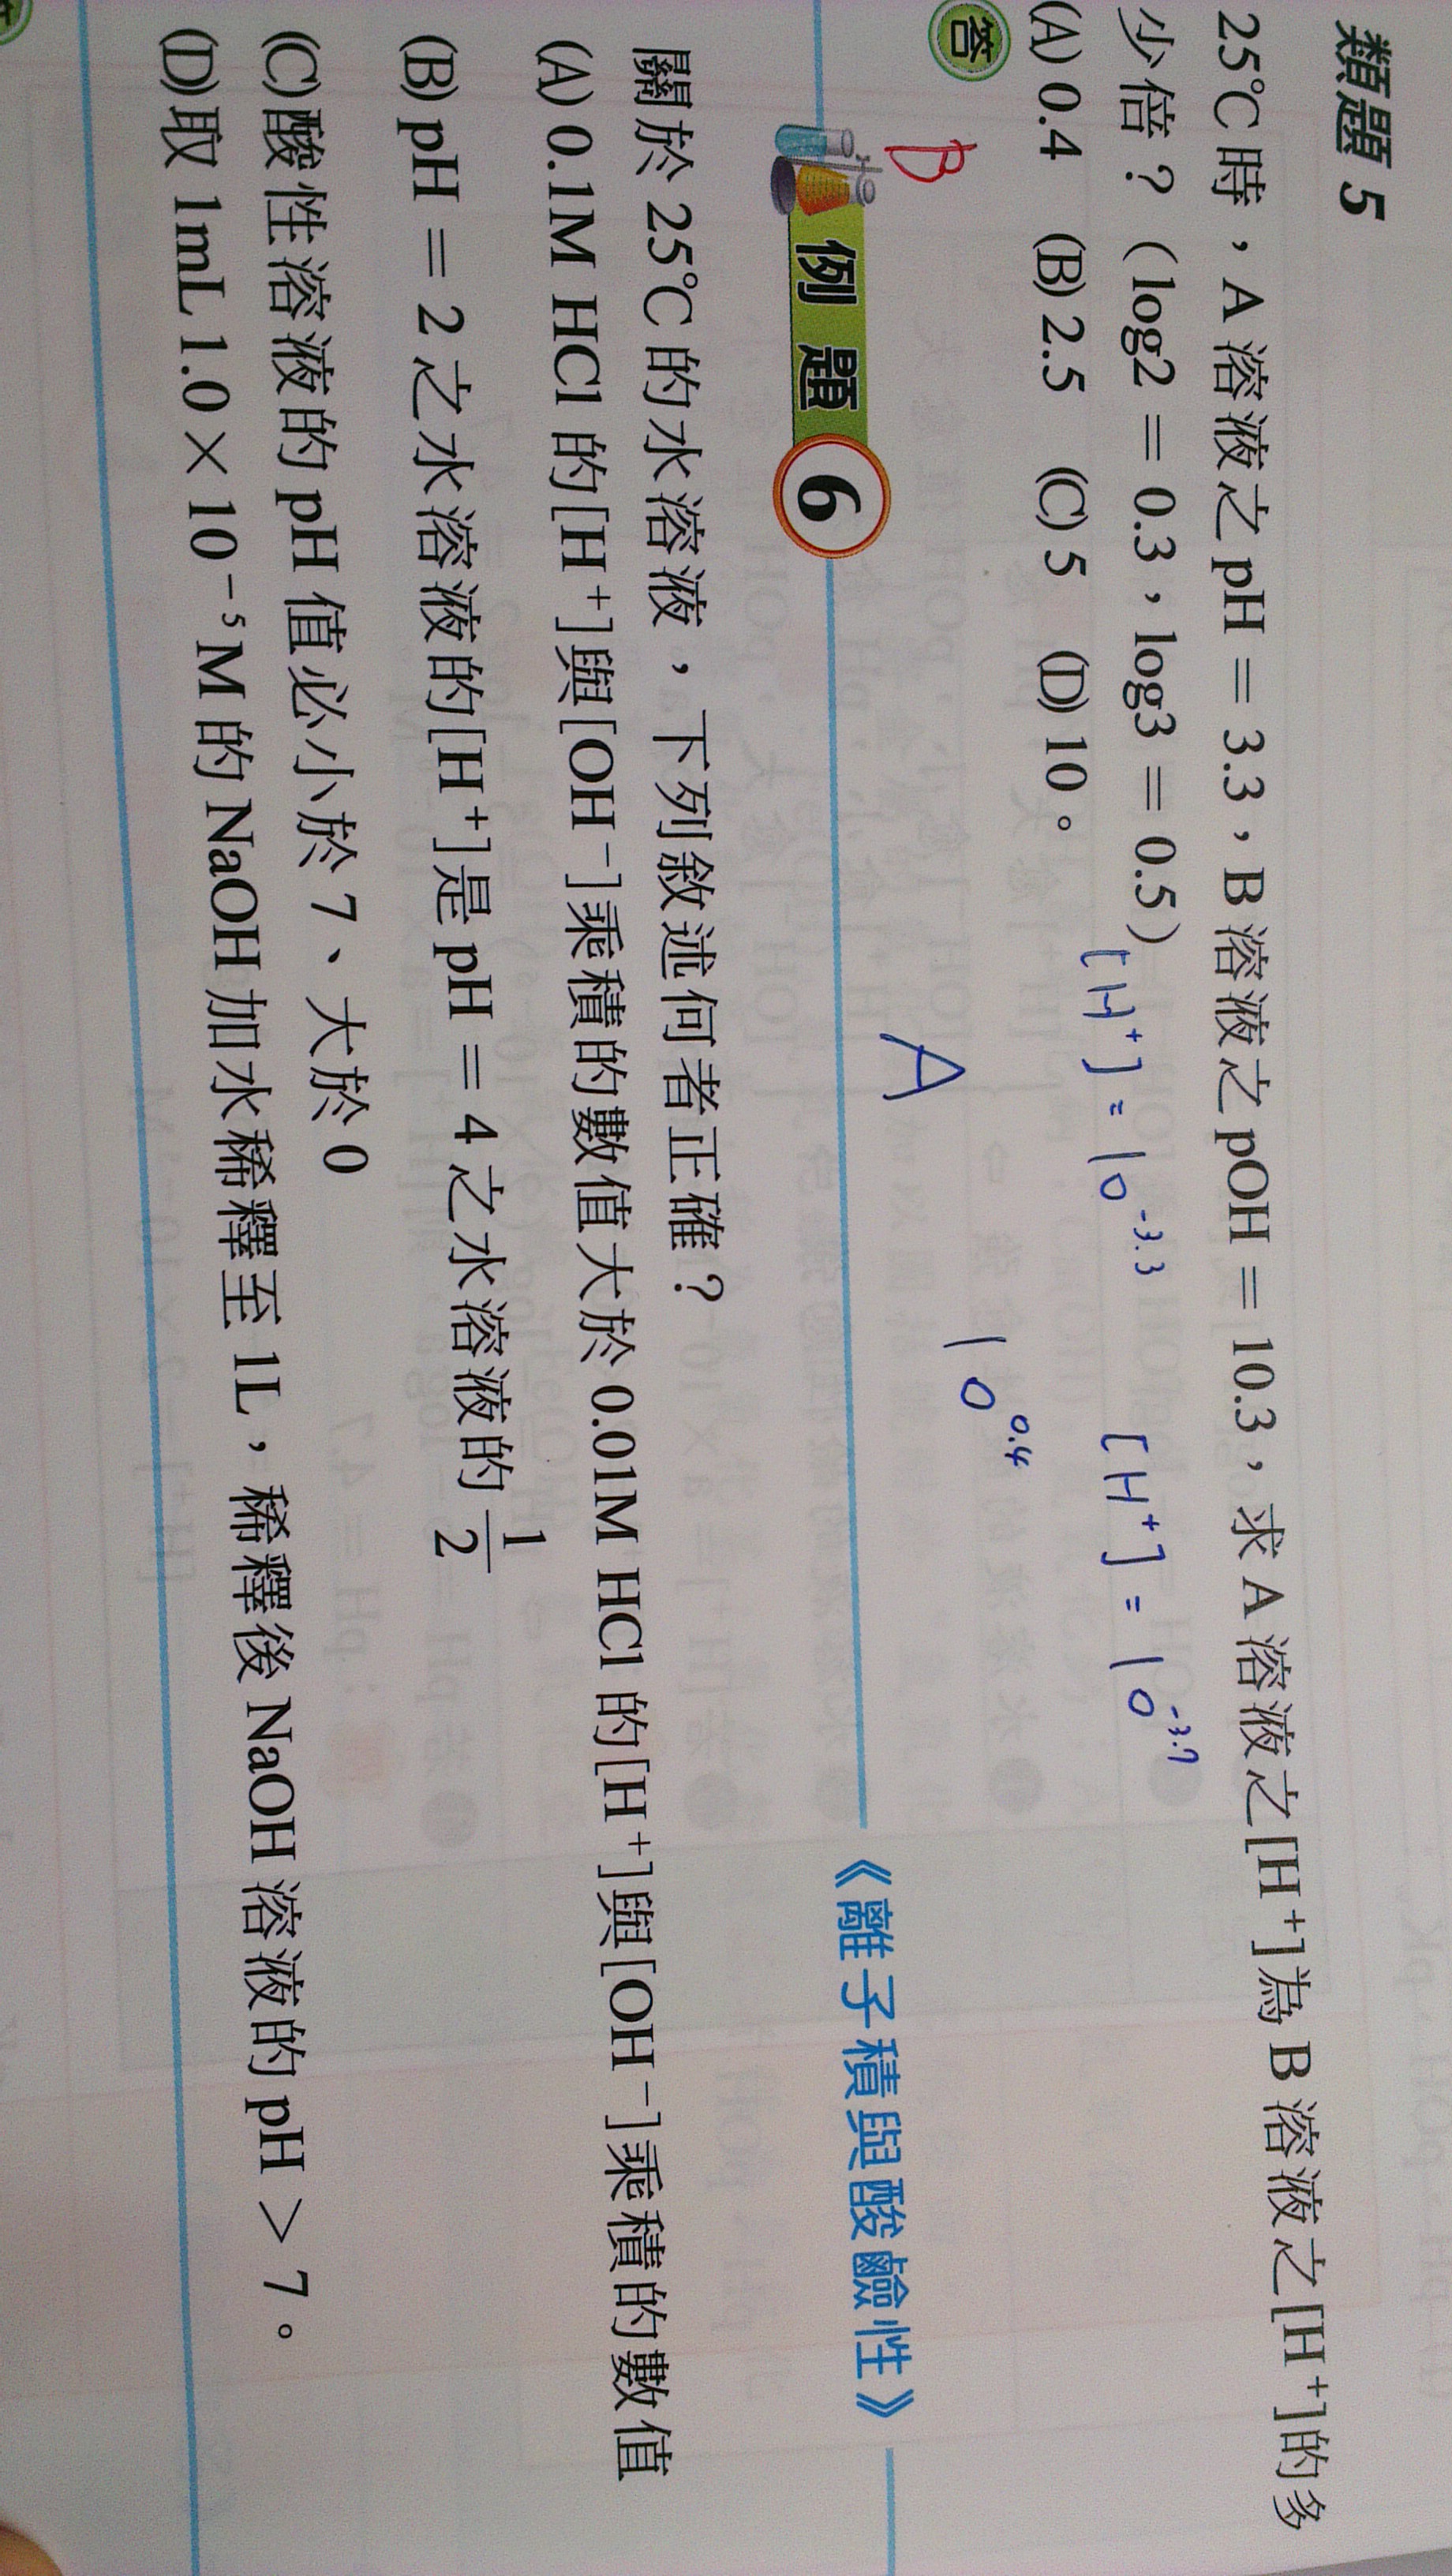 類題 5
25℃時，A 溶液之 pH = 3.3，B 溶液之 pOH = 10.3，求 A 溶液之[H⁺]為 B 溶液之[H⁺]的多
少倍？（log2 = 0.3，log3 = 0.5）
[H⁺] = 10⁻³·³ [H⁺] = 10⁻³·⁷
(A) 0.4 (B) 2.5 (C) 5 (D) 10。
10⁰·⁴
答 B A
例題 6 《離子積與酸鹼性》
關於 25℃ 的水溶液，下列敘述何者正確？
(A) 0.1M HCl 的[H⁺]與[OH⁻]乘積的數值大於 0.01M HCl 的[H⁺]與[OH⁻]乘積的數值
(B) pH = 2 之水溶液的[H⁺]是 pH = 4 之水溶液的 1/2
(C)酸性溶液的 pH 值必小於 7、大於 0
(D)取 1mL 1.0 × 10⁻⁵M 的 NaOH 加水稀釋至 1L，稀釋後 NaOH 溶液的 pH > 7。
答